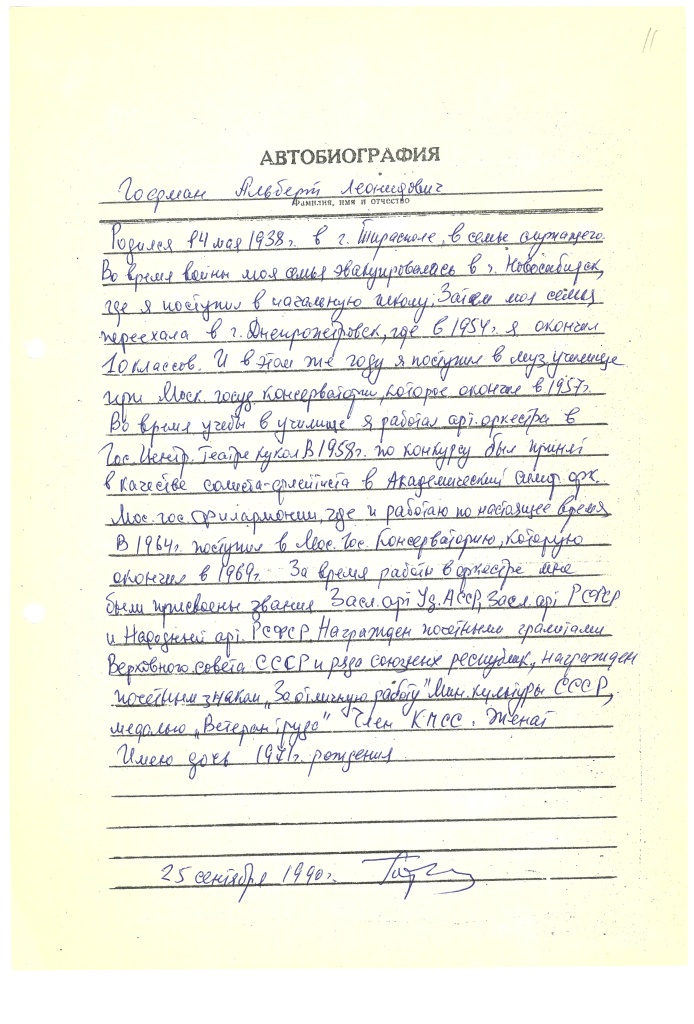 11
АВТОБИОГРАФИЯ
Гофман Альберт Леонидович
Фамилия, имя и отчество
Родился 14 мая 1938г. в г. Тирасполе, в семье служащего.
Во время войны моя семья эвакуировалась в г. Новосибирск,
где я поступил в начальную школу. Затем моя семья
переехала в г. Днепропетровск, где в 1954г. я окончил
10 классов. И в этом же году я поступил в муз. училище
при Моск. госуд. консерватории, которое окончил в 1957г.
Во время учебы в училище я работал арт. оркестра в
Гос. Центр. Театре кукол. В 1958г. по конкурсу был принят
в качестве солиста-флейтиста в Академический симф. орк.
Мос. гос. филармонии, где и работаю по настоящее время
В 1964г. поступил в Мос. Гос. Консерваторию, которую
окончил в 1969г. За время работы в оркестре мне
были присвоены звания Засл. арт. Уз. АССР, Засл. арт РСФСР
и Народный арт. РСФСР. Награжден почетными грамотами
Верховного совета СССР и ряда союзных республик, награжден
почетным знаком „За отличную работу" Мин. культуры СССР,
медалью „Ветеран труда" Член КПСС. Женат
Имею дочь 1971г. рождения
25 сентября 1990г.